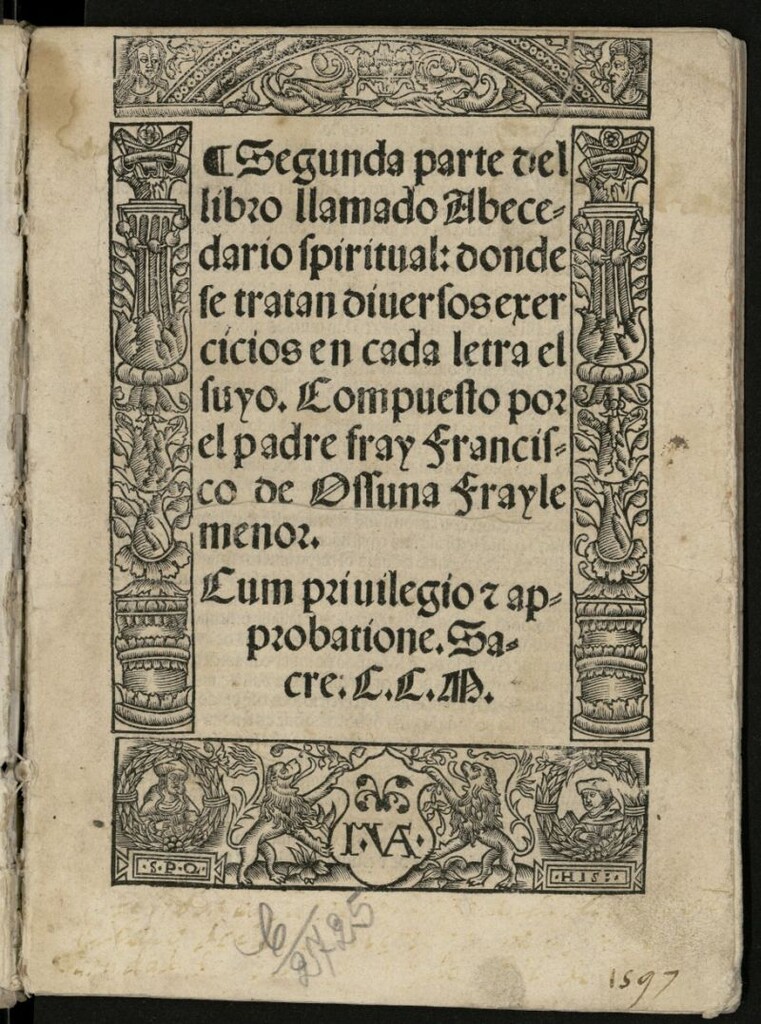 ⁋Segunda parte del
libro llamado Abece-
dario spiritual: donde
se tratan diuersos exer
cicios en cada letra el
suyo. Compuesto por
el padre fray Francis-
co de Ossuna Frayle
menor.
Cum priuilegio ⁊ ap-
probatione. Sa-
cre. C.C.M.
·S·P·Q·
·HIS:·
1597